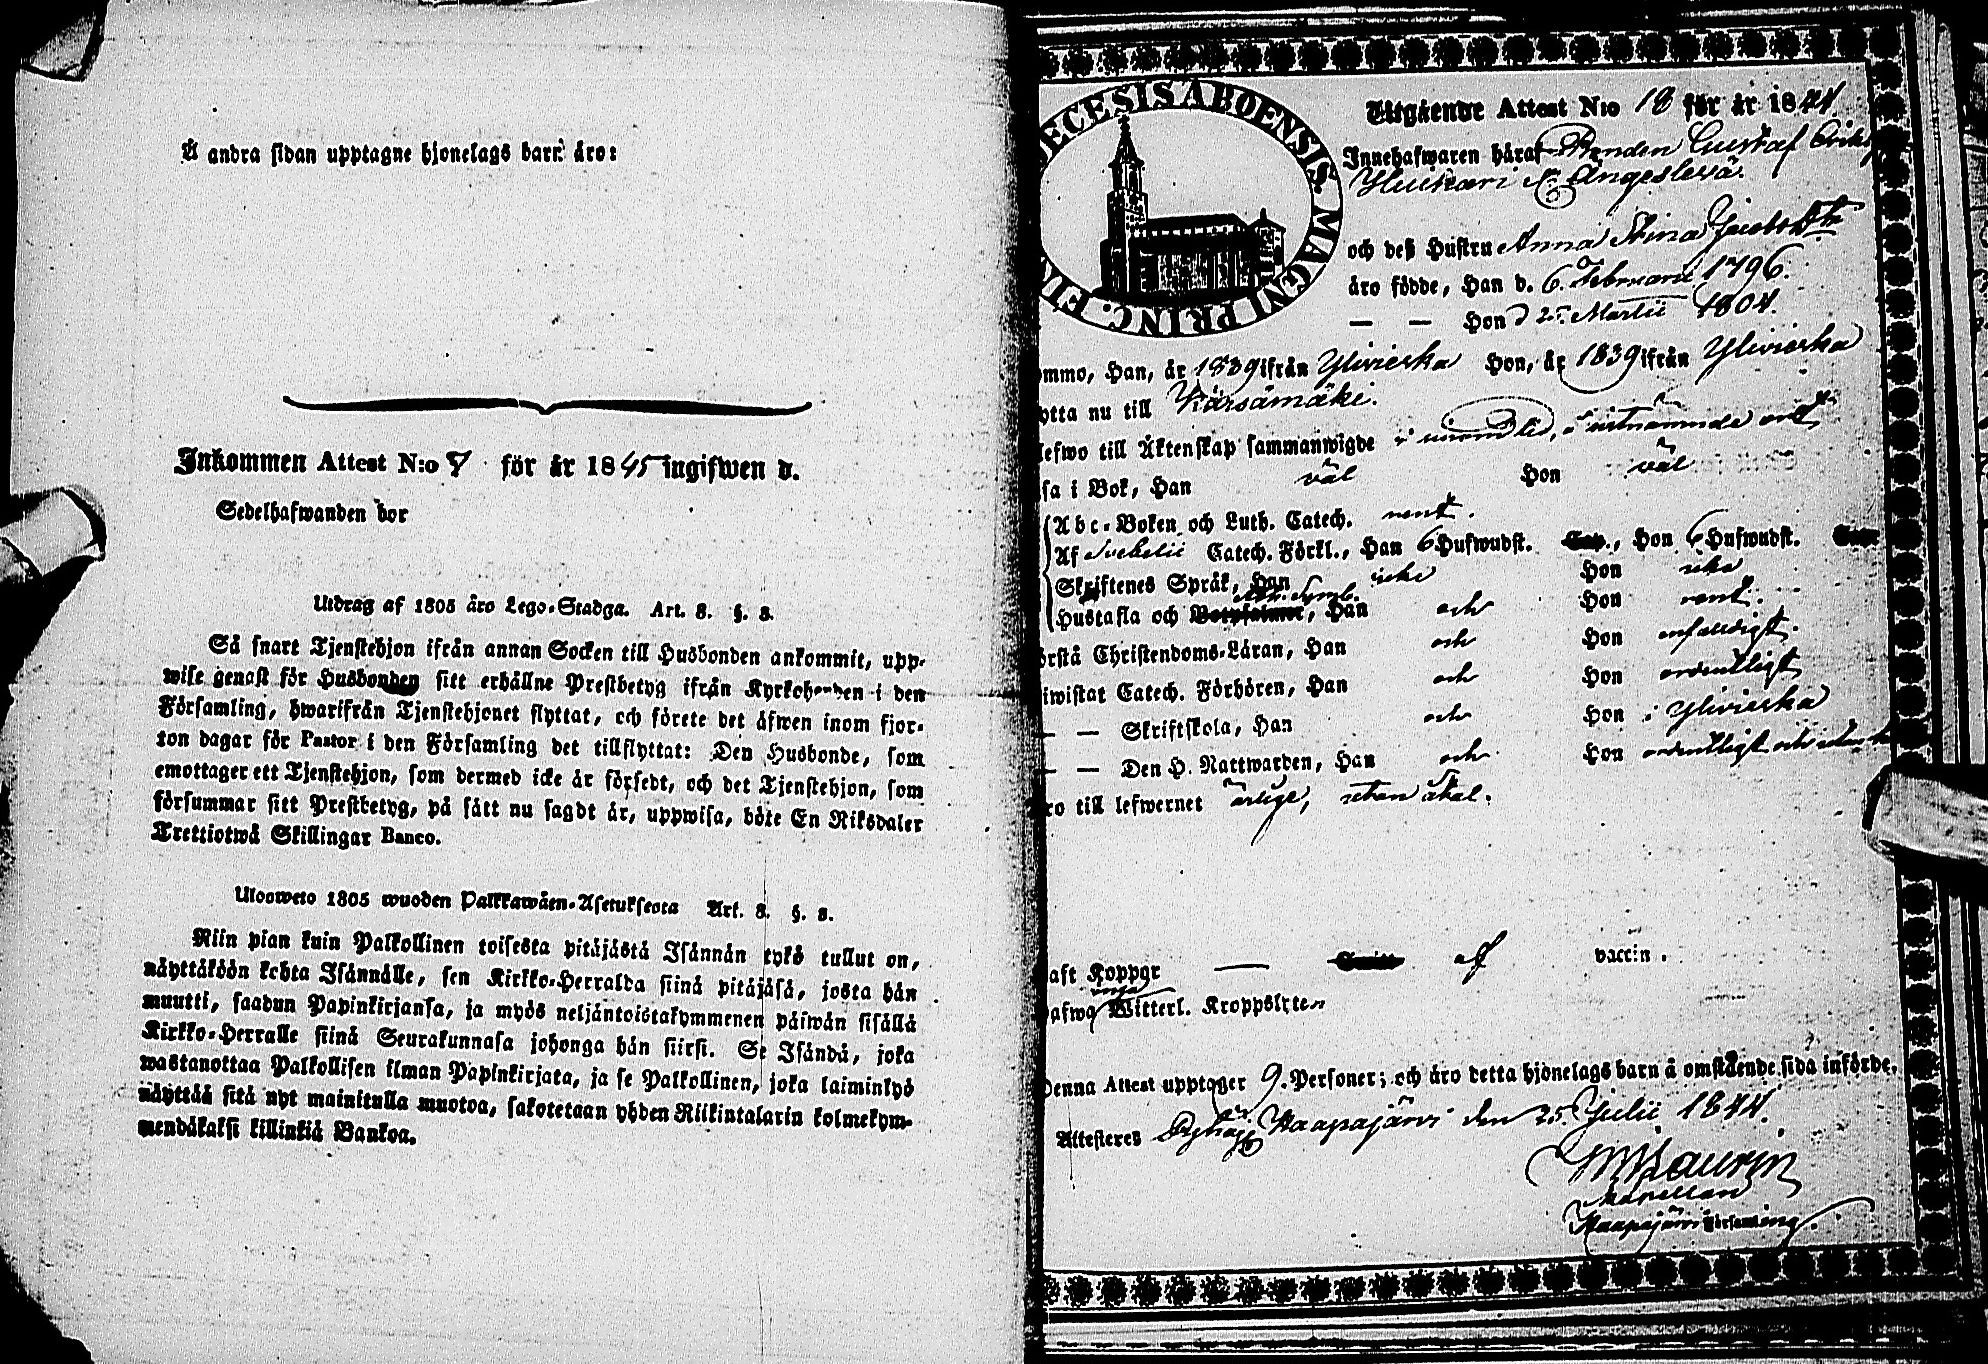 Å andra sidan upptagne hjonelags barn äro:
Inkommen Attest N:o 7. för år 1845 ingifwen d.
Sedelhafwanden bor
Utdrag af 1805 års Lego-Stadga. Art. 8. §. 8.
Så snart Tjenstehjon ifrån annan Socken till Husbonden ankommit, upp-
wise genast för Husbonden sitt erhållne Prestbetyg ifrån Kyrkoherden i den
Församling, hwarifrån Tjenstehjonet flyttat, och förete det äfwen inom fjor-
ton dagar för Pastor i den Församling det tillflyttat: Den Husbonde, som
emottager ett Tjenstehjon, som dermed icke är försedt, och det Tjenstehjon, som
försummar sitt Prestbetyg, på sätt nu sagdt är, uppwisa, böte En Riksdaler
Trettiotwå Skillingar Banco.
Ulosweto 1805 wuoden Palkkawäen-Asetuksesta Art. 8. §. 8.
Niin pian kuin Palkollinen toisesta pitäjästä Isännän tykö tullut on,
näyttäköön kohta Isännälle, sen Kirkko-Herralda siinä pitäjäsä, josta hän
muutti, saadun Papinkirjansa, ja myös neljäntoistakymmenen päiwän sisällä
Kirkko-Herralle siinä Seurakunnasa johonga hän siirsi. Se Isändä, joka
wastanottaa Palkollisen ilman Papinkirjata, ja se Palkollinen, joka laiminlyö
näyttää sitä nyt mainitulla muotoa, sakotetaan yhden Riikintalarin kolmekym-
mendäkaksi killinkiä Bankoa.
DIECESIS ABOENSIS. MAGNI PRINC. FIN
Utgående Attest N:o 18 för år 1844
Innehafwaren häraf Bonden Gustaf Eriks
Ängeslevä
och deß Hustru Anna Stina Jacobsdtr
äro födde, Han d. 6. Februarii 1796.
— — Hon d 25. Martii 1804.
ommo, Han, år 1839 ifrån Ylivieska Hon, år 1839 ifrån Ylivieska
ytta nu till Kärsämäki.
lefwo till Äktenskap sammanwigde i sistnämnde ort
sa i Bok, Han väl Hon väl
Abc-Boken och Luth. Catech. rent.
Af Svebelii Catech. Förkl., Han 6 Hufwudst. Cap., Hon 6 Hufwudst.
Skriftenes Språk, Han icke Hon icke
Hustafla och Symb., Han och Hon rent.
örstå Christendoms-Läran, Han och Hon enfaldigt.
iwistat Catech. Förhören, Han och Hon ordentligt
— — Skriftskola, Han och Hon i Ylivieska
— — Den H. Nattwarden, Han och Hon ordentligt och
ro till lefwernet ärlige, utan åtal.
aft Koppor — af vaccin.
hafwa inga Witterl. Kroppslyten
Denna Attest upptager 9. Personer; och äro detta hjonelags barn å omstående sida införde.
Attesteres Haapajärvi den 25. Julii 1844.
Laurin
Kapellan
Haapajärvi församling.